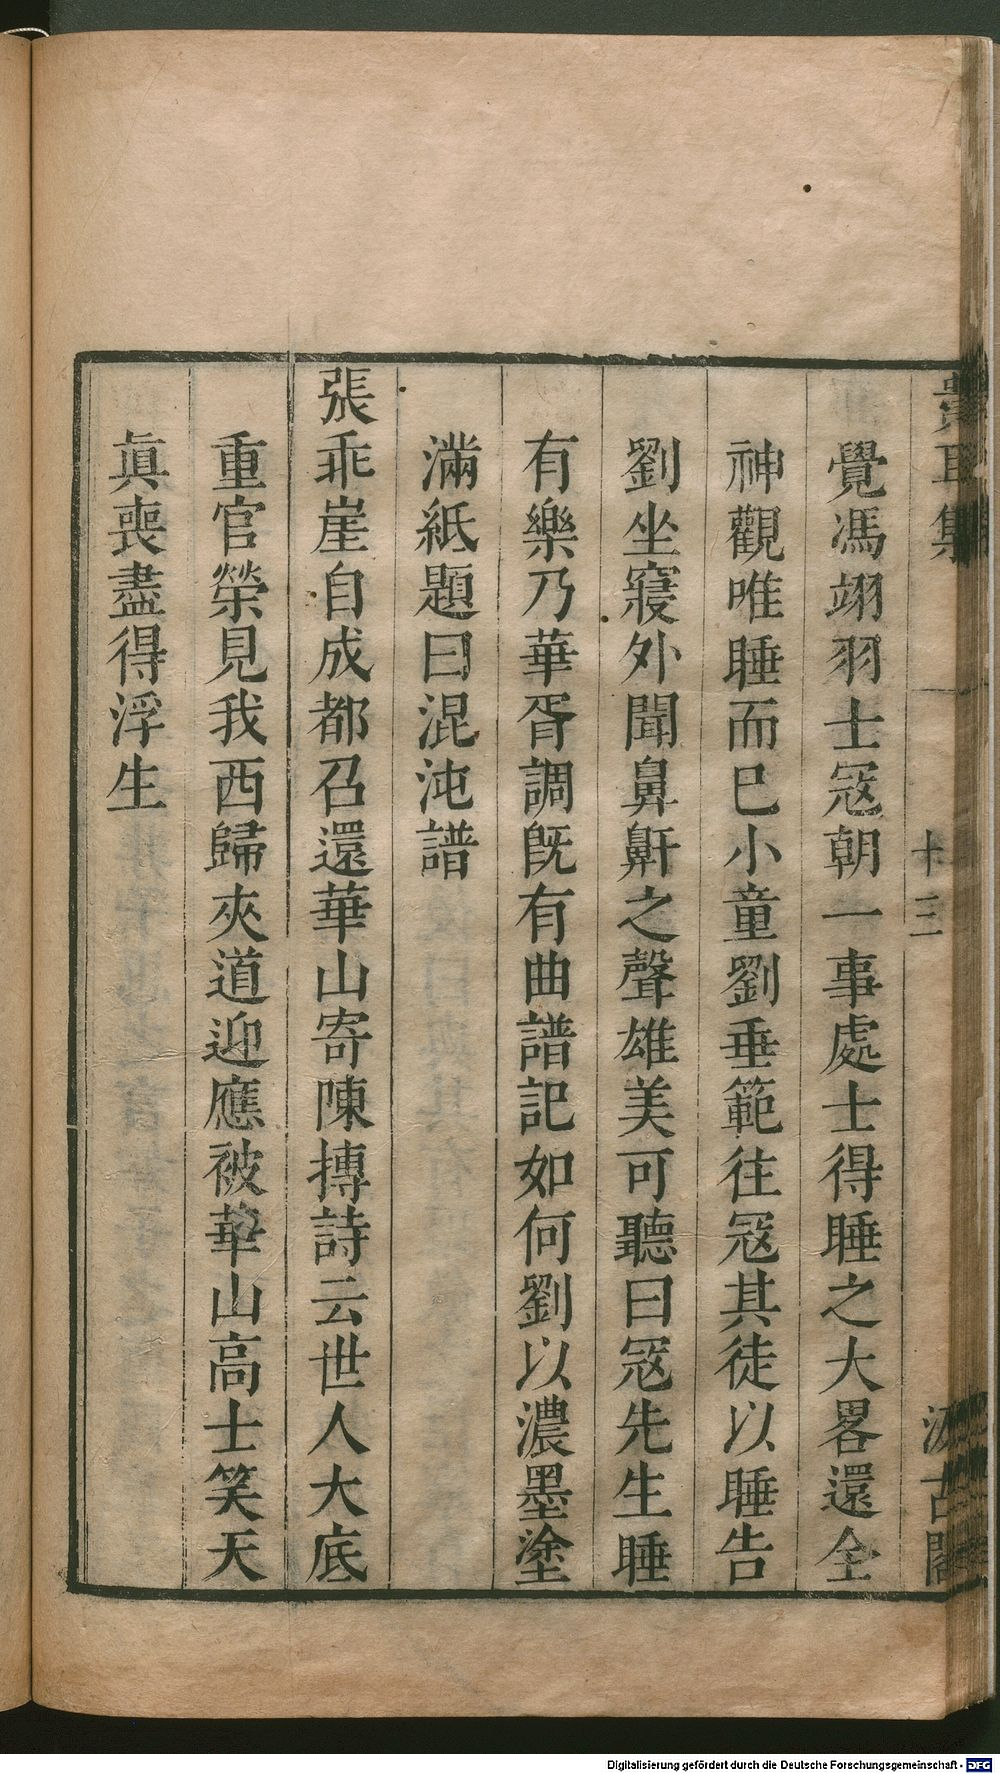 貴耳集
十三
汲古閣
覺馮翊羽士冦朝一事處士得睡之大畧還全
神觀唯睡而巳小童劉垂範往冦其徒以睡告
劉坐寢外聞鼻鼾之聲雄美可聽曰冦先生睡
有樂乃華胥調旣有曲譜記如何劉以濃墨塗
滿紙題曰混沌譜
張乖崖自成都召還華山寄陳摶詩云世人大底
重官榮見我西歸夾道迎應被華山高士笑天
眞喪盡得浮生
Digitalisierung gefördert durch die Deutsche Forschungsgemeinschaft - DFG